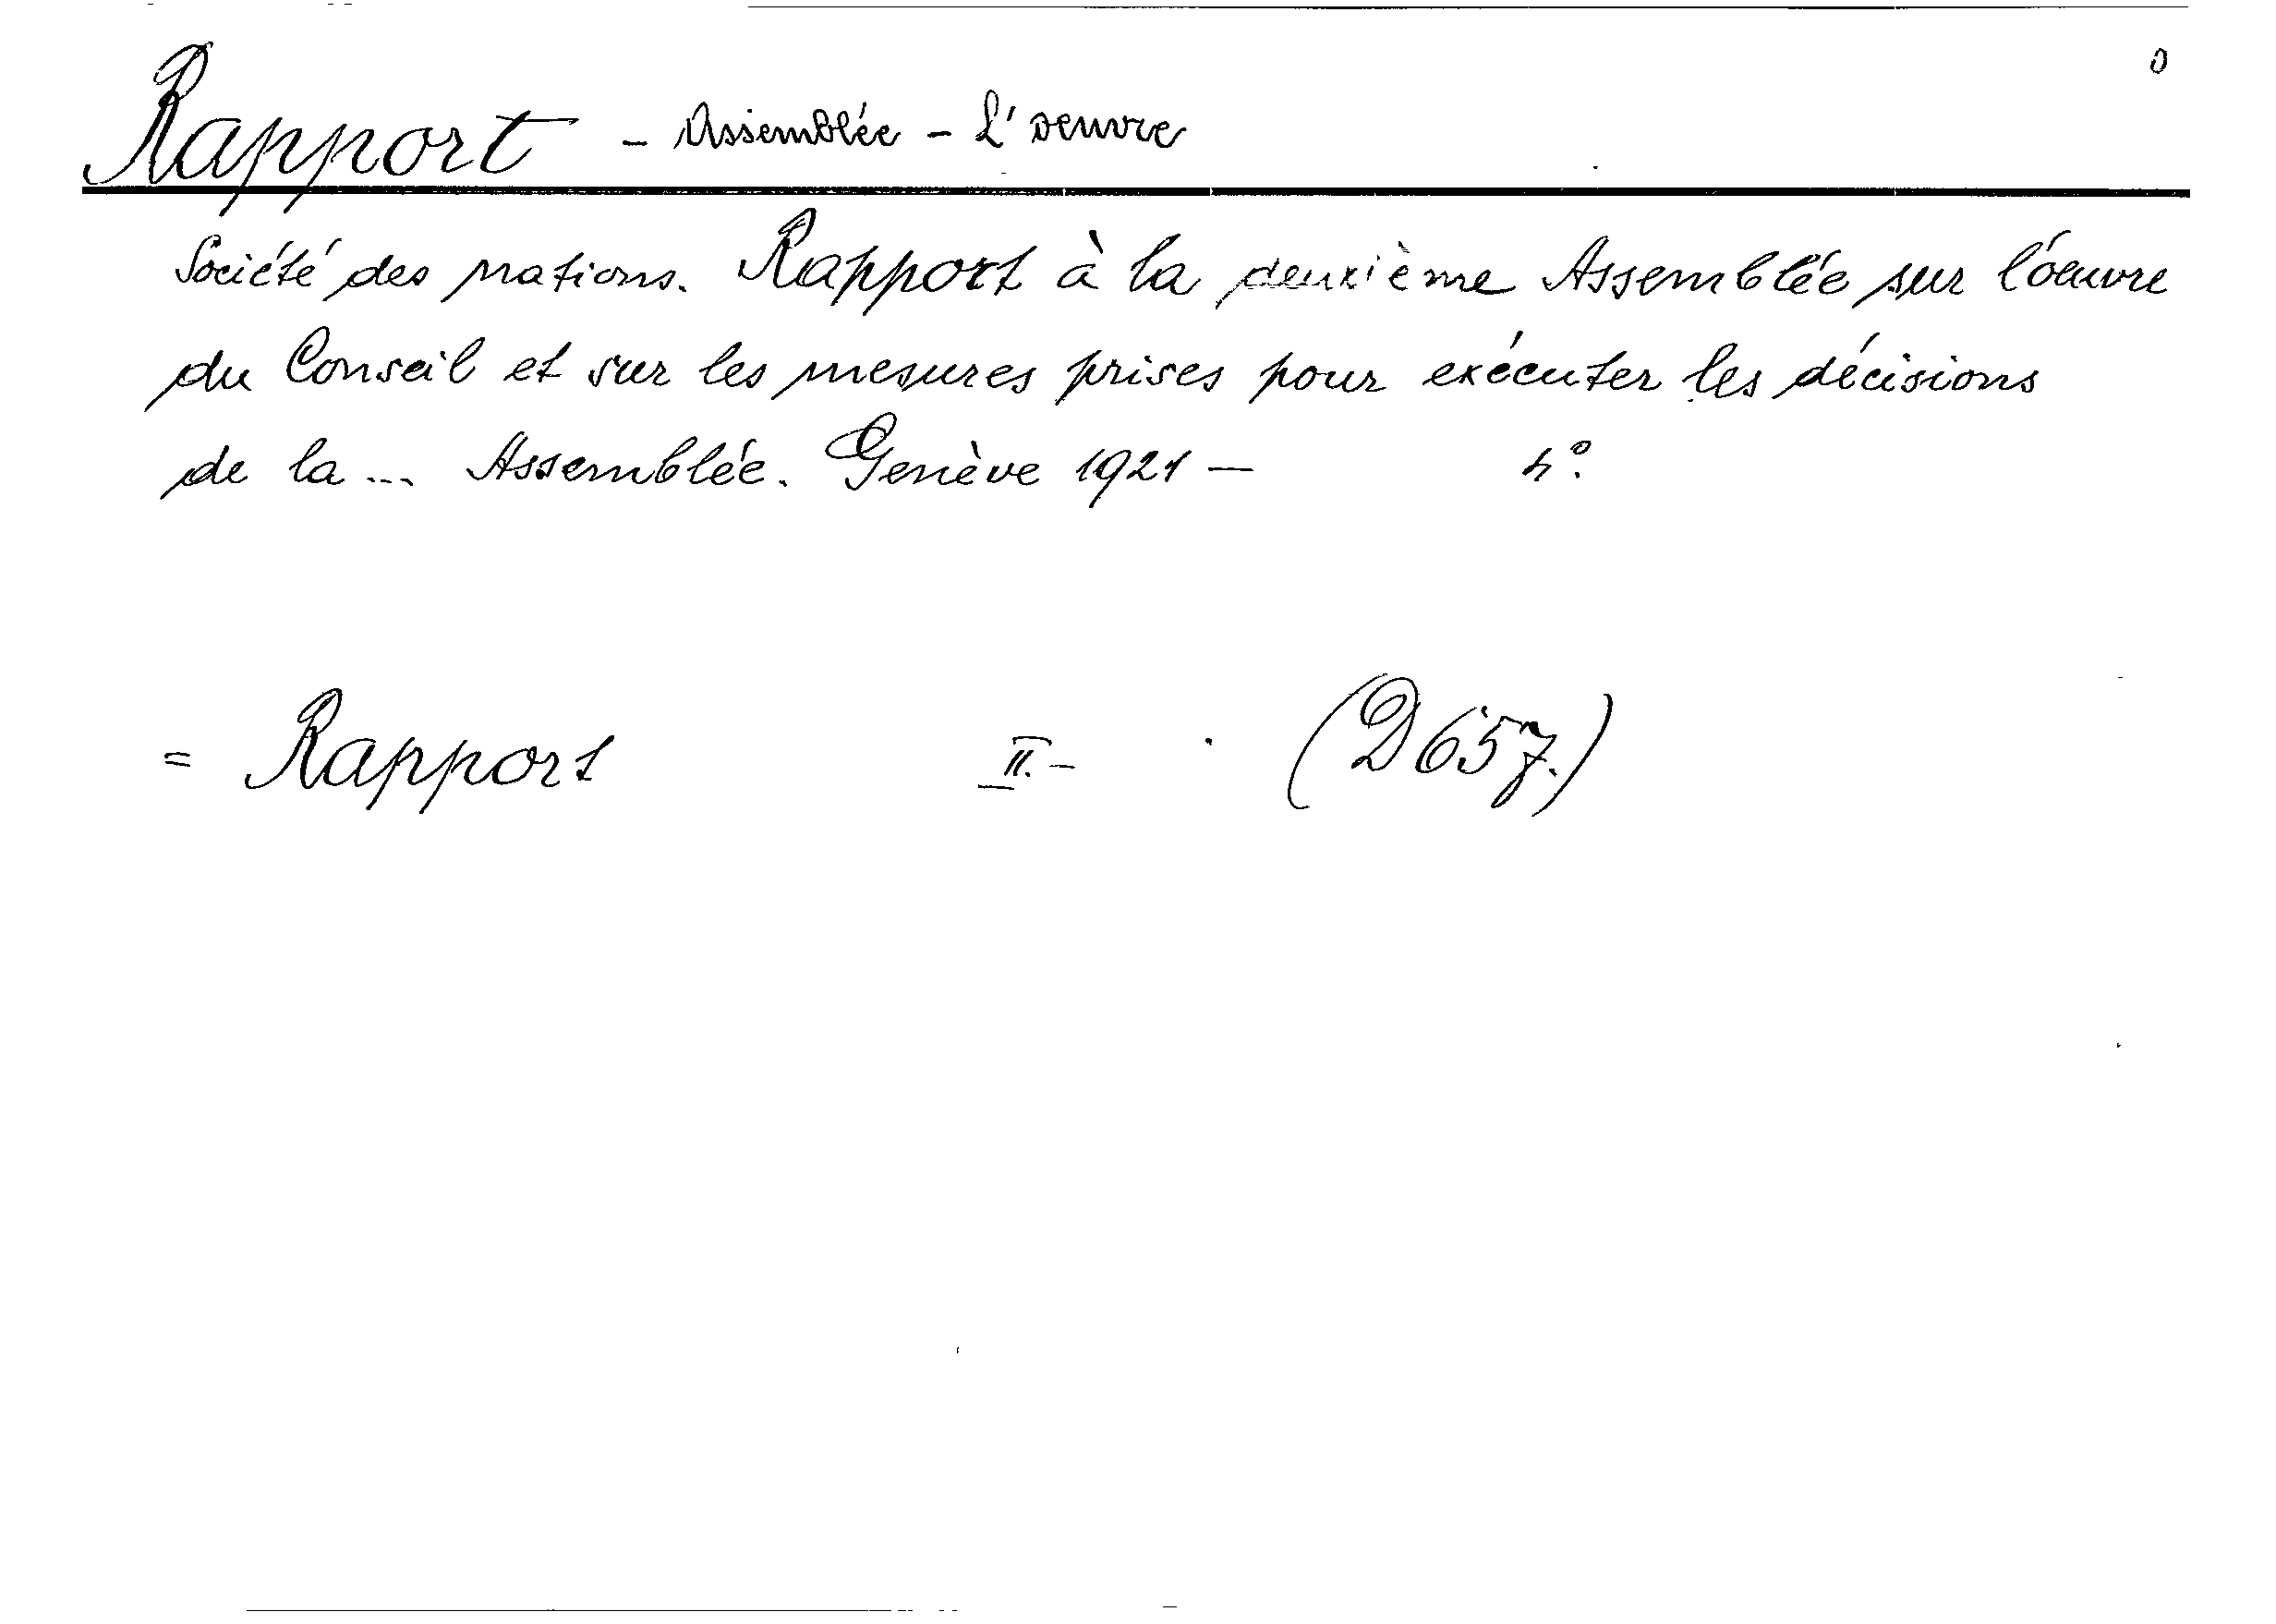 0
Rapport - Assemblée - L'oeuvre
Société des Nations. Rapport à la deuxième Assemblée sur l'oeuvre
du Conseil et sur les mesures prises pour exécuter les décisions
de la ... Assemblée. Genève 1921 — 4°.
= Rapport II.- (D 657.)